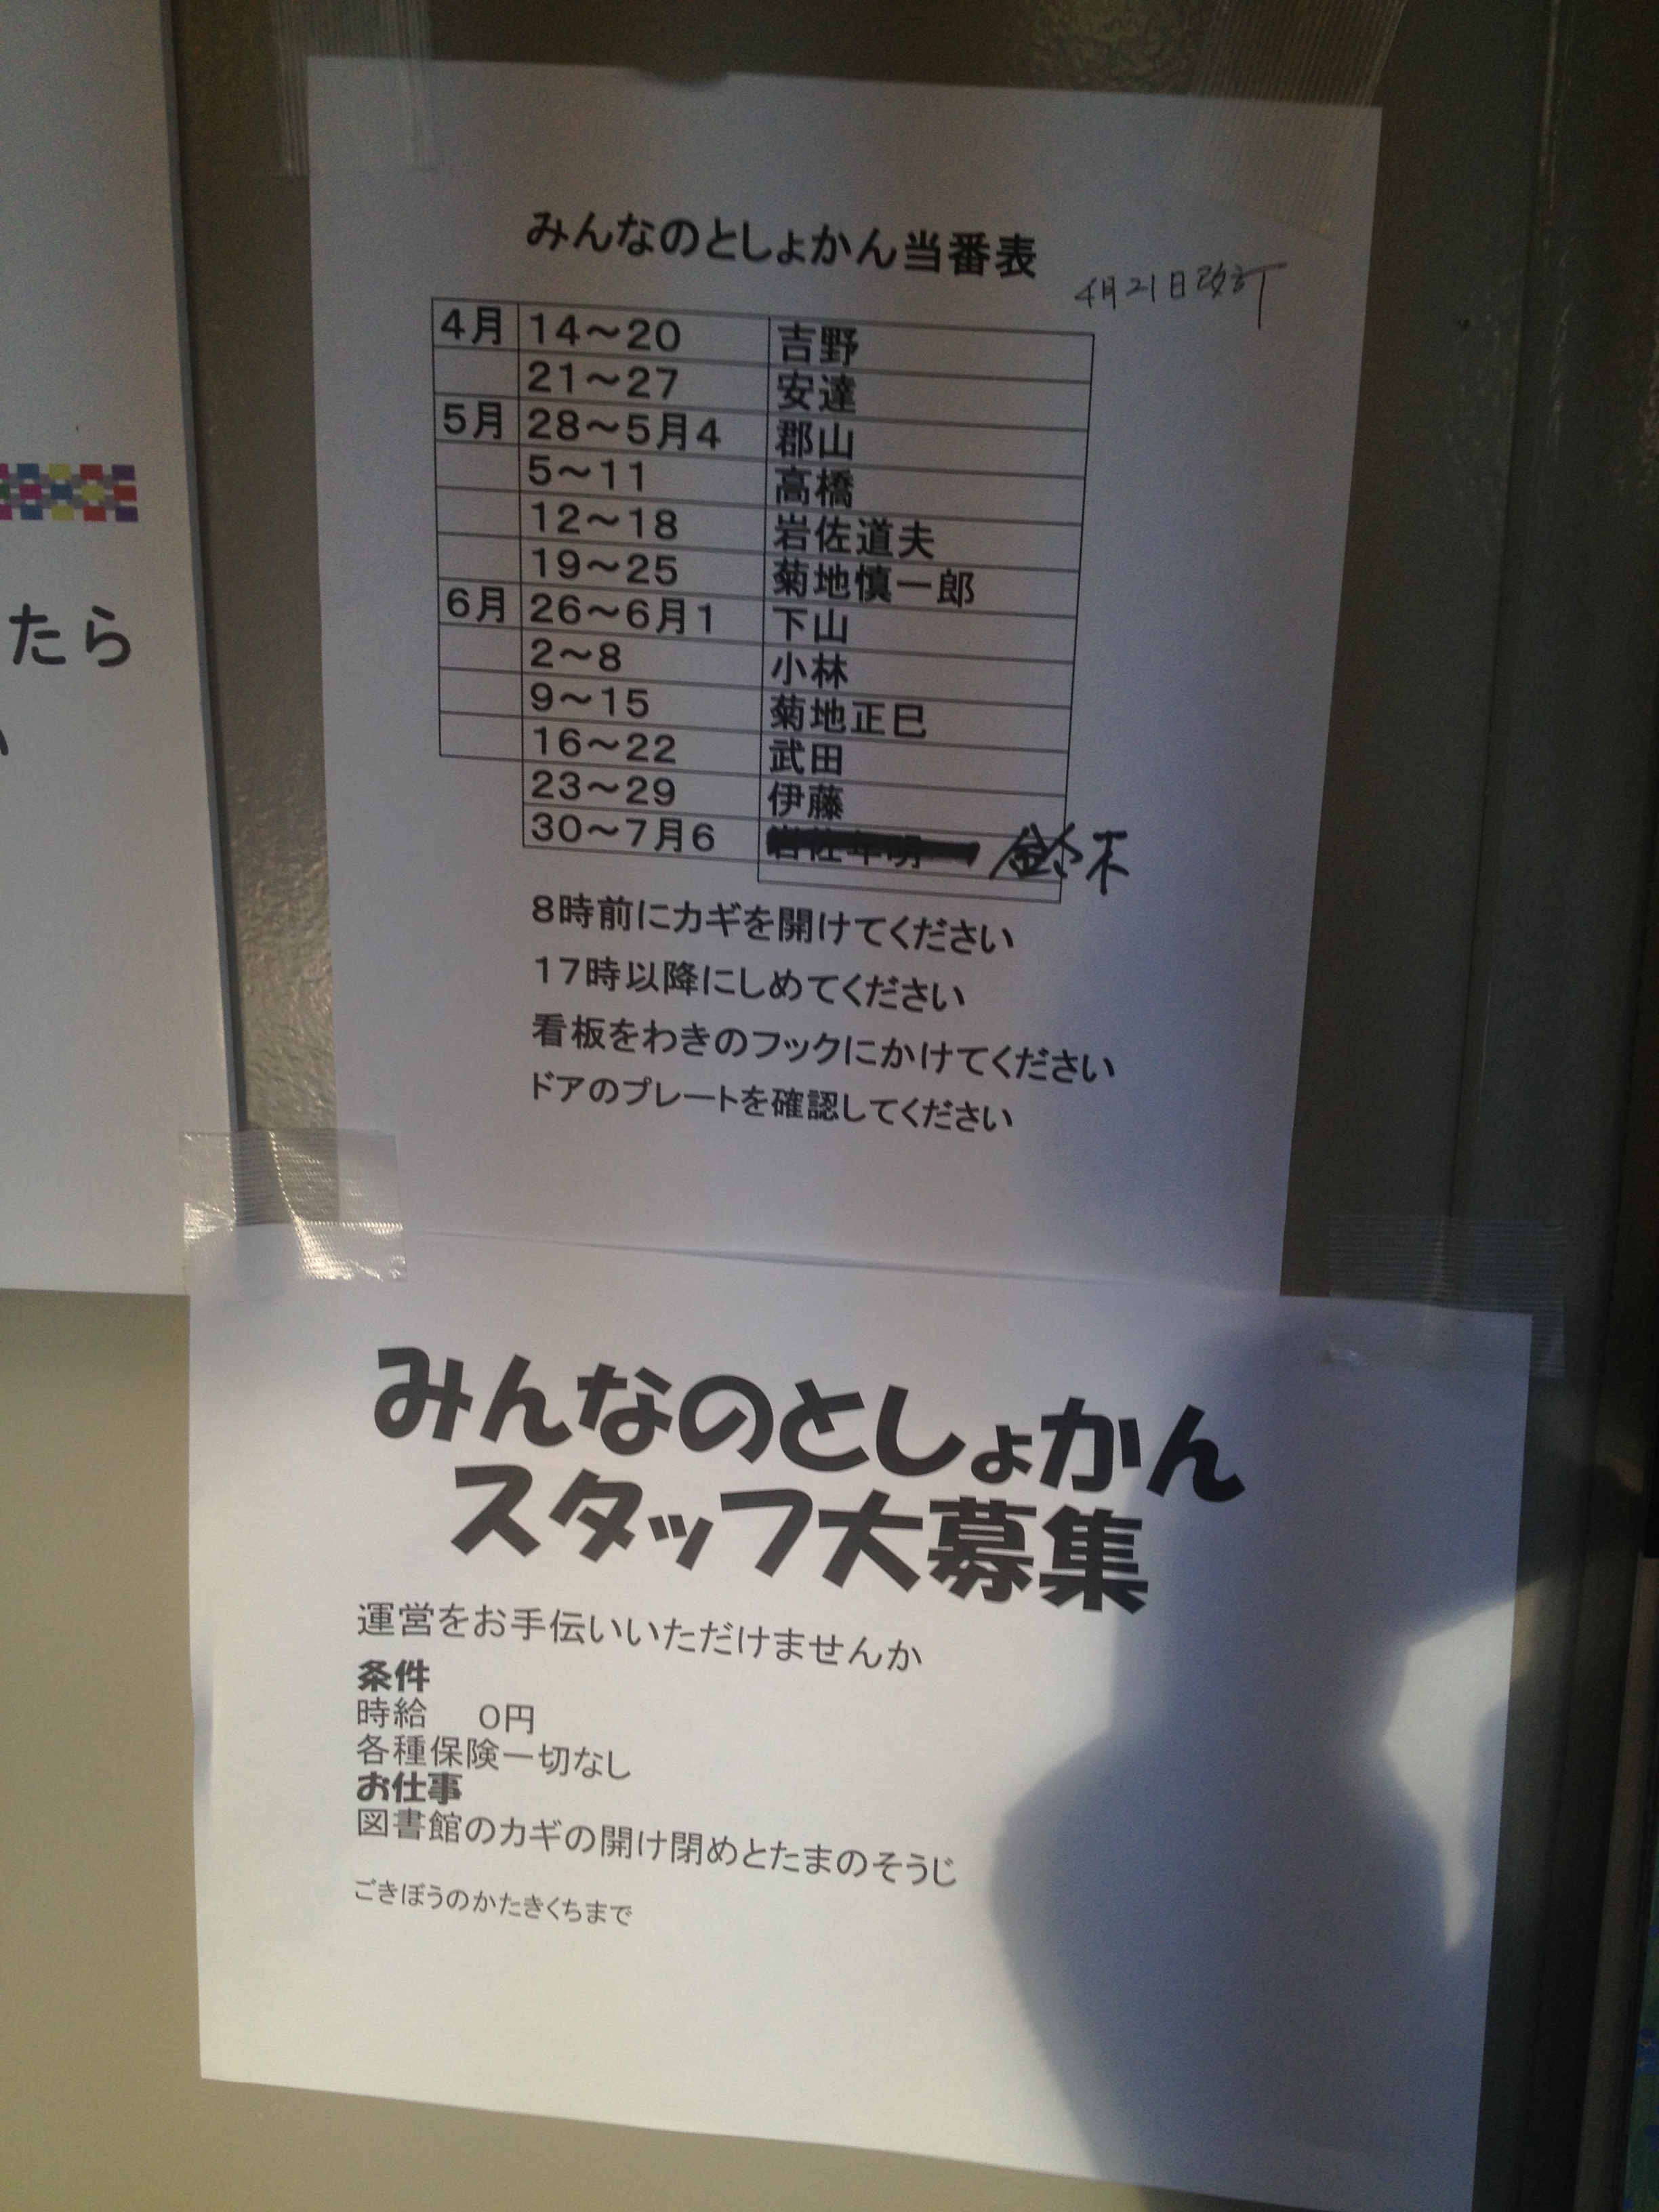 みんなのとしょかん当番表
4月21日改訂
4月 14～20 吉野
21～27 安達
5月 28～5月4 郡山
5～11 高橋
12～18 岩佐道夫
19～25 菊地慎一郎
6月 26～6月1 下山
2～8 小林
9～15 菊地正巳
16～22 武田
23～29 伊藤
30～7月6 鈴木
8時前にカギを開けてください
17時以降にしめてください
看板をわきのフックにかけてください
ドアのプレートを確認してください
たら
みんなのとしょかん
スタッフ大募集
運営をお手伝いいただけませんか
条件
時給 0円
各種保険一切なし
お仕事
図書館のカギの開け閉めとたまのそうじ
ごきぼうのかたきくちまで